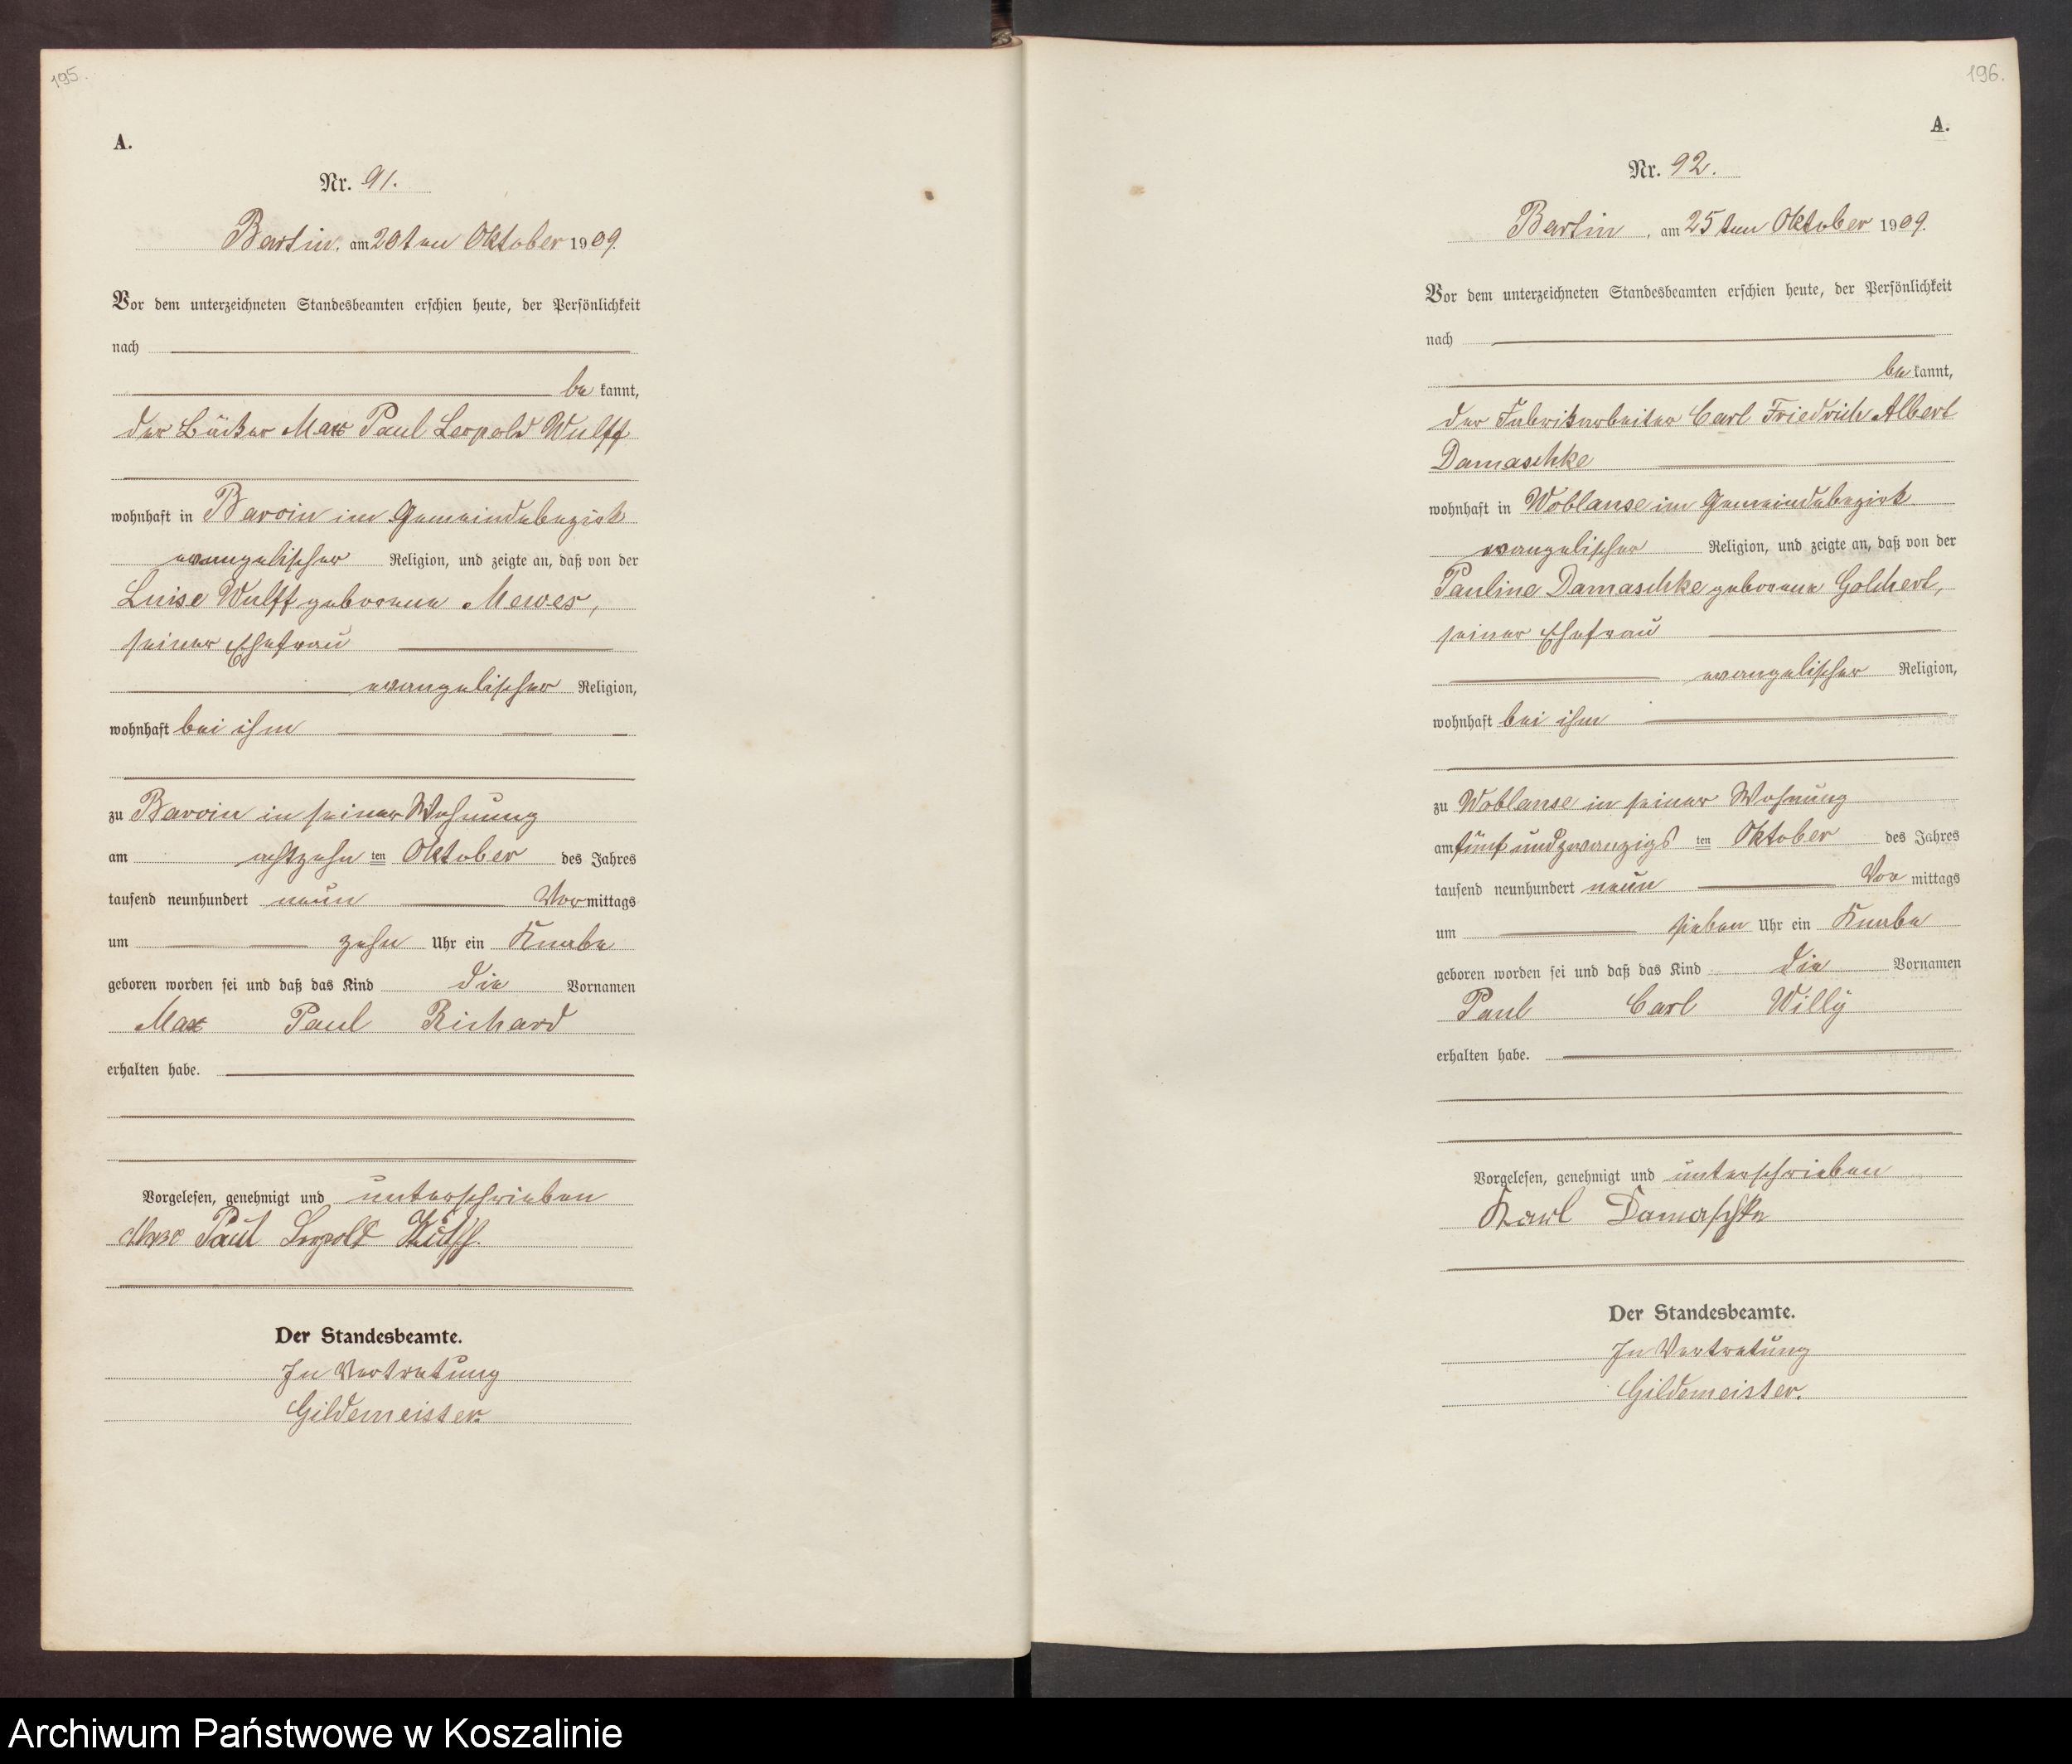 195.
A.
Nr. 91.
Bartin, am 20ten Oktober 1909.
Vor dem unterzeichneten Standesbeamten erschien heute, der Persönlichkeit
nach
be kannt,
der Bäcker Max Paul Leopold Wulff
wohnhaft in Barvin im Gemeindebezirk
evangelischer Religion, und zeigte an, daß von der
Luise Wulff geborene Mewes,
seiner Ehefrau
evangelischer Religion,
wohnhaft bei ihm
zu Barvin in seiner Wohnung
am achtzehn ten Oktober des Jahres
tausend neunhundert neun Vormittags
um zehn Uhr ein Knabe
geboren worden sei und daß das Kind die Vornamen
Max Paul Richard
erhalten habe.
Vorgelesen, genehmigt und unterschrieben
Max Paul Leopold Wulff.
Der Standesbeamte.
In Vertretung
Gildemeister.
196.
A.
Nr. 92.
Bartin, am 25ten Oktober 1909.
Vor dem unterzeichneten Standesbeamten erschien heute, der Persönlichkeit
nach
be kannt,
der Fabrikarbeiter Carl Friedrich Albert
Damaschke
wohnhaft in Woblanse im Gemeindebezirk
evangelischer Religion, und zeigte an, daß von der
Pauline Damaschke geborene Golchert,
seiner Ehefrau
evangelischer Religion,
wohnhaft bei ihm
zu Woblanse in seiner Wohnung
am fünfundzwanzigs ten Oktober des Jahres
tausend neunhundert neun Vor mittags
um sieben Uhr ein Knabe
geboren worden sei und daß das Kind die Vornamen
Paul Carl Willy
erhalten habe.
Vorgelesen, genehmigt und unterschrieben
Karl Damaschke
Der Standesbeamte.
In Vertretung
Gildemeister.
Archiwum Państwowe w Koszalinie